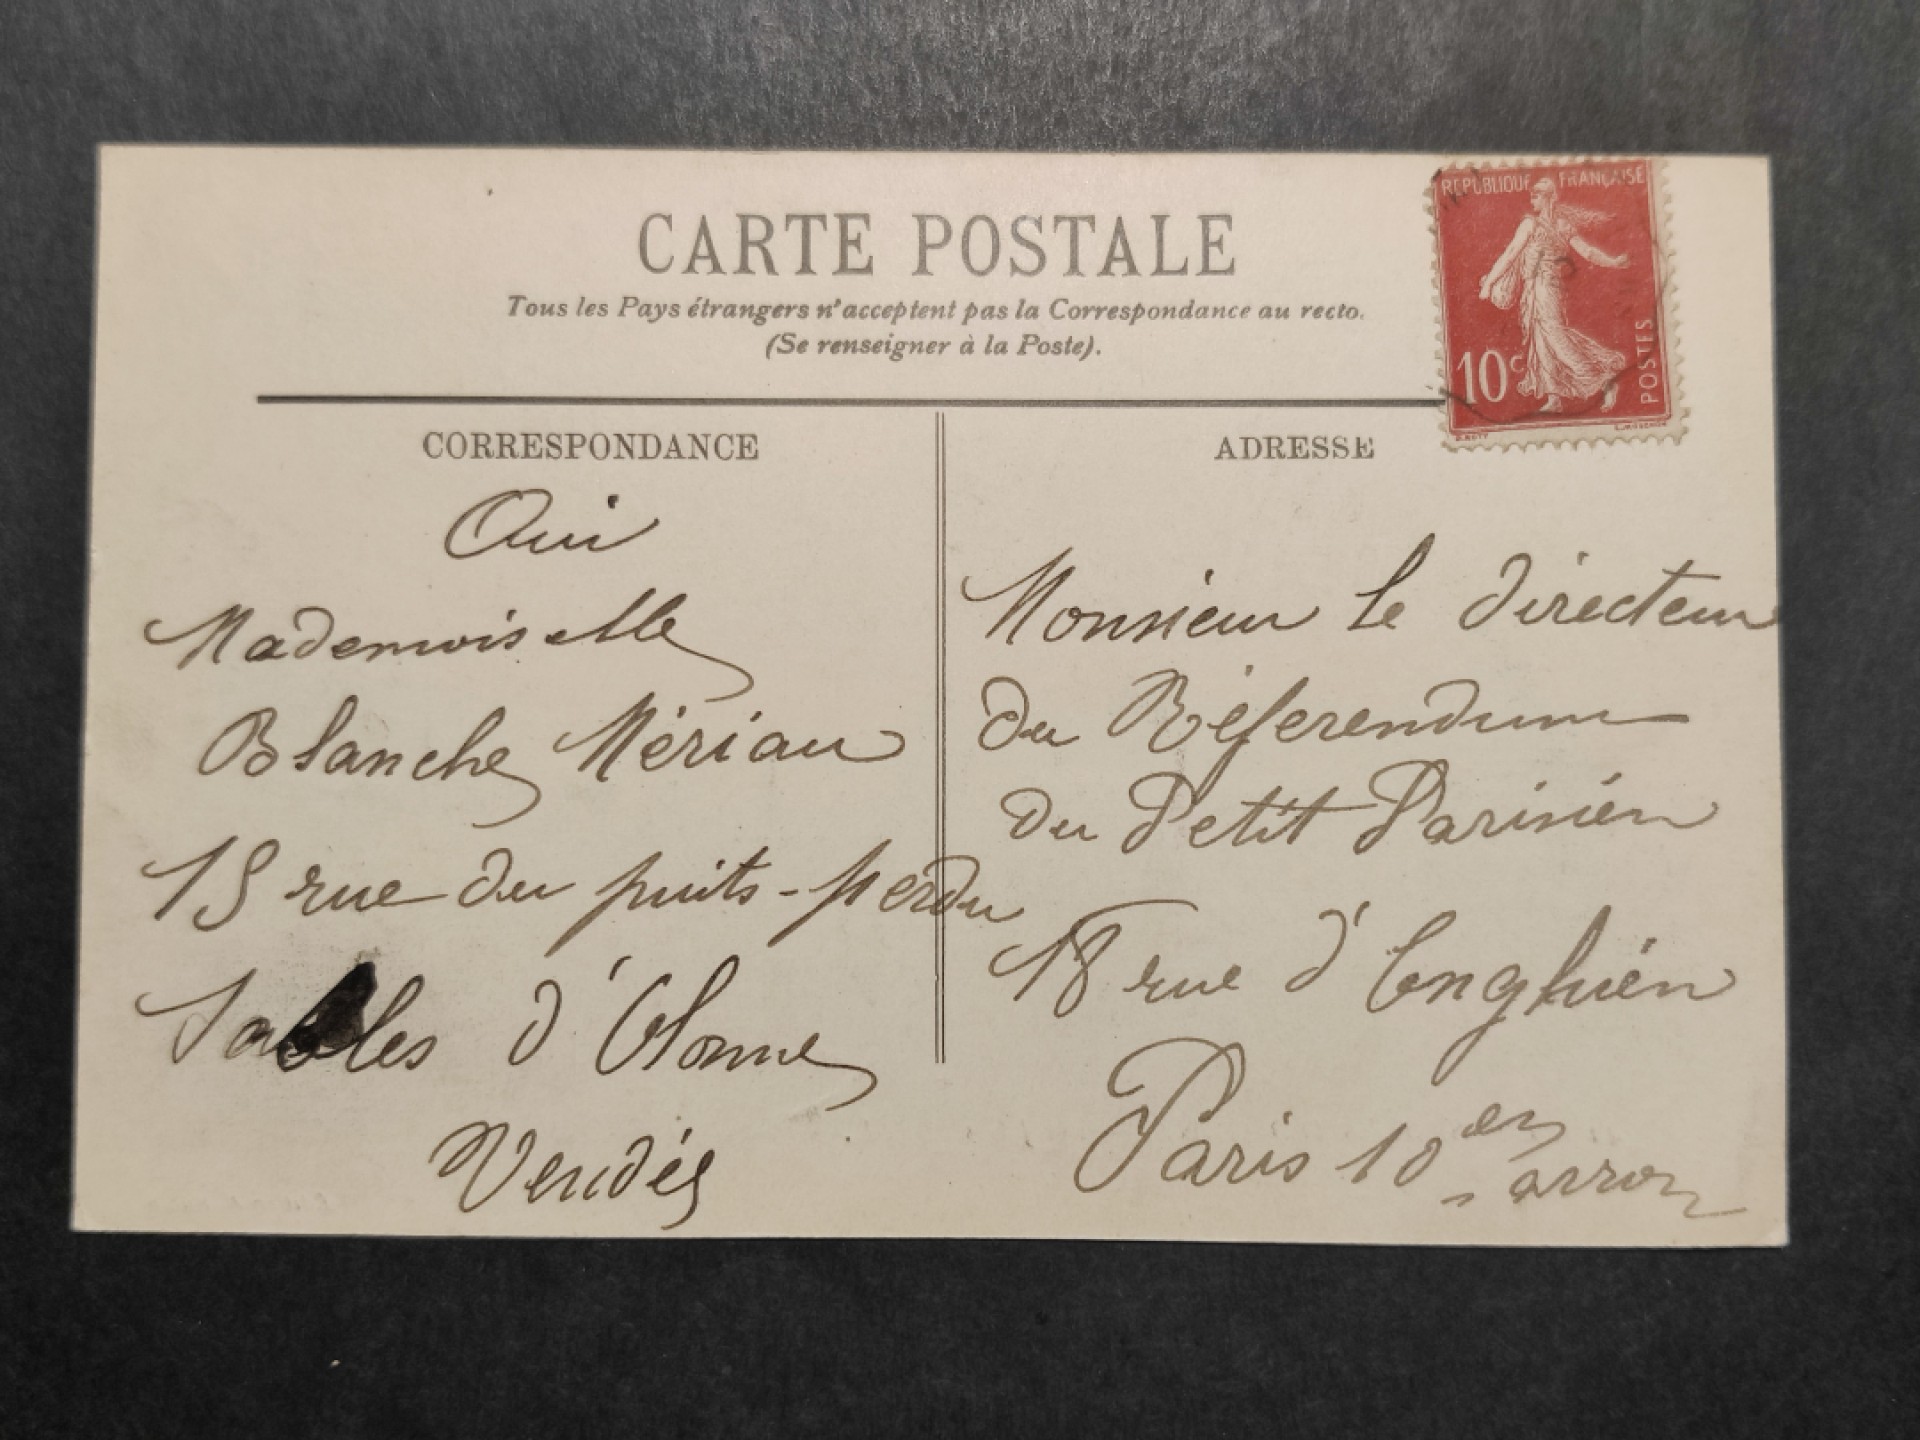 CARTE POSTALE
Tous les Pays étrangers n'acceptent pas la Correspondance au recto.
(Se renseigner à la Poste).
REPUBLIQUE FRANÇAISE
10c
POSTES
CORRESPONDANCE
Oui
Mademoiselle
Blanche Mériau
15 rue du puits-perdu
Sables d'Olonne
Vendée
ADRESSE
Monsieur le directeur
du Réferendum
du Petit Parisien
18 rue d'Enghien
Paris 10em arron